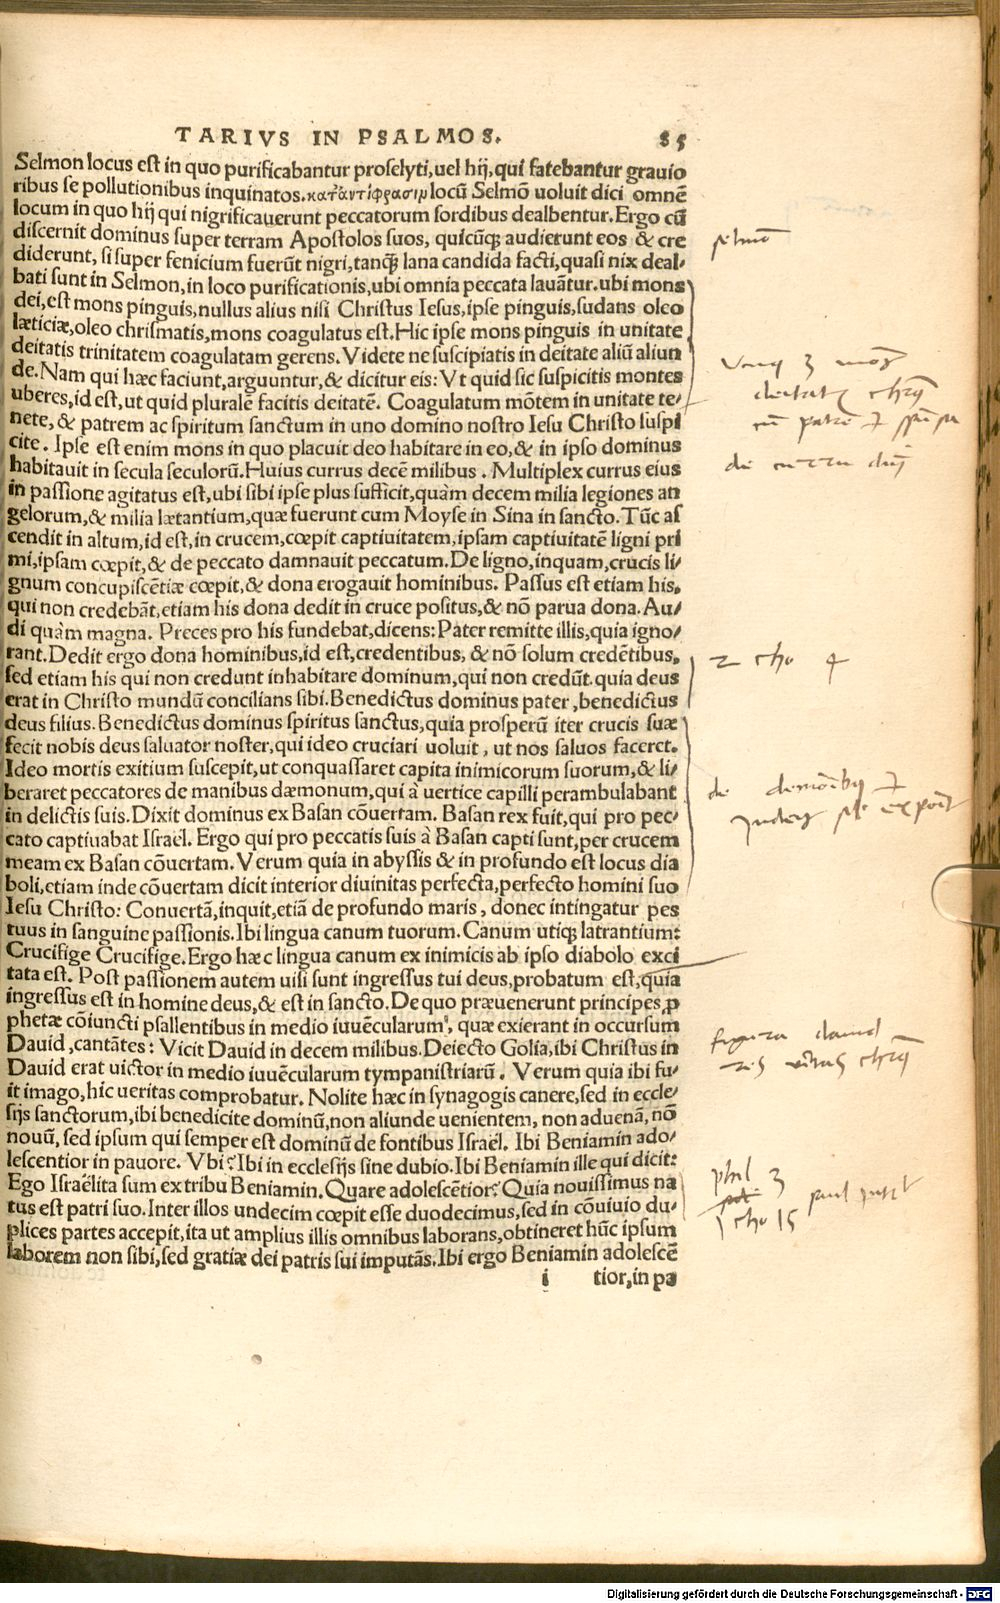 TARIVS IN PSALMOS. 85
Selmon locus est in quo purificabantur proselyti, uel hij, qui fatebantur grauio
ribus se pollutionibus inquinatos. κατ᾽ἀντίφρασιμ locũ Selmõ uoluit dici omnẽ
locum in quo hij qui nigrificauerunt peccatorum sordibus dealbentur. Ergo cũ
discernit dominus super terram Apostolos suos, quicũq; audierunt eos & cre
diderunt, si super fenicium fuerũt nigri, tanq̃ lana candida facti, quasi nix deal-
bati sunt in Selmon, in loco purificationis, ubi omnia peccata lauãtur. ubi mons
dei, est mons pinguis, nullus alius nisi Christus Iesus, ipse pinguis, sudans oleo
læticiæ, oleo chrismatis, mons coagulatus est. Hic ipse mons pinguis in unitate
deitatis trinitatem coagulatam gerens. Videte ne suscipiatis in deitate aliũ aliun
de. Nam qui hæc faciunt, arguuntur, & dicitur eis: Vt quid sic suspicitis montes
uberes, id est, ut quid pluralẽ facitis deitatẽ. Coagulatum mõtem in unitate te-
nete, & patrem ac spiritum sanctum in uno domino nostro Iesu Christo suspi
cite. Ipse est enim mons in quo placuit deo habitare in eo, & in ipso dominus
habitauit in secula seculorũ. Huius currus decẽ milibus. Multiplex currus eius
in passione agitatus est, ubi sibi ipse plus sufficit, quàm decem milia legiones an
gelorum, & milia lætantium, quæ fuerunt cum Moyse in Sina in sancto. Tũc as
cendit in altum, id est, in crucem, cœpit captiuitatem, ipsam captiuitatẽ ligni pri
mi, ipsam cœpit, & de peccato damnauit peccatum. De ligno, inquam, crucis li-
gnum concupiscẽtiæ cœpit, & dona erogauit hominibus. Passus est etiam his,
qui non credebãt, etiam his dona dedit in cruce positus, & nõ parua dona. Au-
di quàm magna. Preces pro his fundebat, dicens: Pater remitte illis, quia igno-
rant. Dedit ergo dona hominibus, id est, credentibus, & nõ solum credẽtibus,
sed etiam his qui non credunt inhabitare dominum, qui non credũt. quia deus
erat in Christo mundũ concilians sibi. Benedictus dominus pater, benedictus
deus filius. Benedictus dominus spiritus sanctus, quia prosperũ iter crucis suæ
fecit nobis deus saluator noster, qui ideo cruciari uoluit, ut nos saluos faceret.
Ideo mortis exitium suscepit, ut conquassaret capita inimicorum suorum, & li-
beraret peccatores de manibus dæmonum, qui à uertice capilli perambulabant
in delictis suis. Dixit dominus ex Basan cõuertam. Basan rex fuit, qui pro pec-
cato captiuabat Israël. Ergo qui pro peccatis suis à Basan capti sunt, per crucem
meam ex Basan cõuertam. Verum quia in abyssis & in profundo est locus dia
boli, etiam inde cõuertam dicit interior diuinitas perfecta, perfecto homini suo
Iesu Christo: Conuertã, inquit, etiã de profundo maris, donec intingatur pes
tuus in sanguine passionis. Ibi lingua canum tuorum. Canum utiq; latrantium:
Crucifige Crucifige. Ergo hæc lingua canum ex inimicis ab ipso diabolo exci
tata est. Post passionem autem uisi sunt ingressus tui deus, probatum est, quia
ingressus est in homine deus, & est in sancto. De quo præuenerunt principes, ꝓ
phetæ cõiuncti psallentibus in medio iuuẽcularum, quæ exierant in occursum
Dauid, cantãtes: Vicit Dauid in decem milibus. Deiecto Golia, ibi Christus in
Dauid erat uictor in medio iuuẽcularum tympanistriarũ. Verum quia ibi fu-
it imago, hic ueritas comprobatur. Nolite hæc in synagogis canere, sed in eccle-
sijs sanctorum, ibi benedicite dominũ, non aliunde uenientem, non aduenã, nõ
nouũ, sed ipsum qui semper est dominũ de fontibus Israël. Ibi Beniamin ado-
lescentior in pauore. Vbi? Ibi in ecclesijs sine dubio. Ibi Beniamin ille qui dicit:
Ego Israëlita sum ex tribu Beniamin. Quare adolescẽtior? Quia nouissimus na
tus est patri suo. Inter illos undecim cœpit esse duodecimus, sed in cõuiuio du-
plices partes accepit, ita ut amplius illis omnibus laborans, obtineret hũc ipsum
laborem non sibi, sed gratiæ dei patris sui imputãs. Ibi ergo Beniamin adolescẽ
i tior, in pa
selmõ
2 cho 4
figura dauid
phil 3
1 cho 15
Digitalisierung gefördert durch die Deutsche Forschungsgemeinschaft - DFG